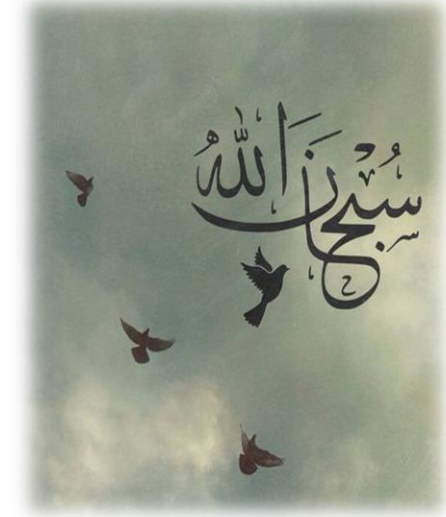 سُبْحَانَ اللهُ